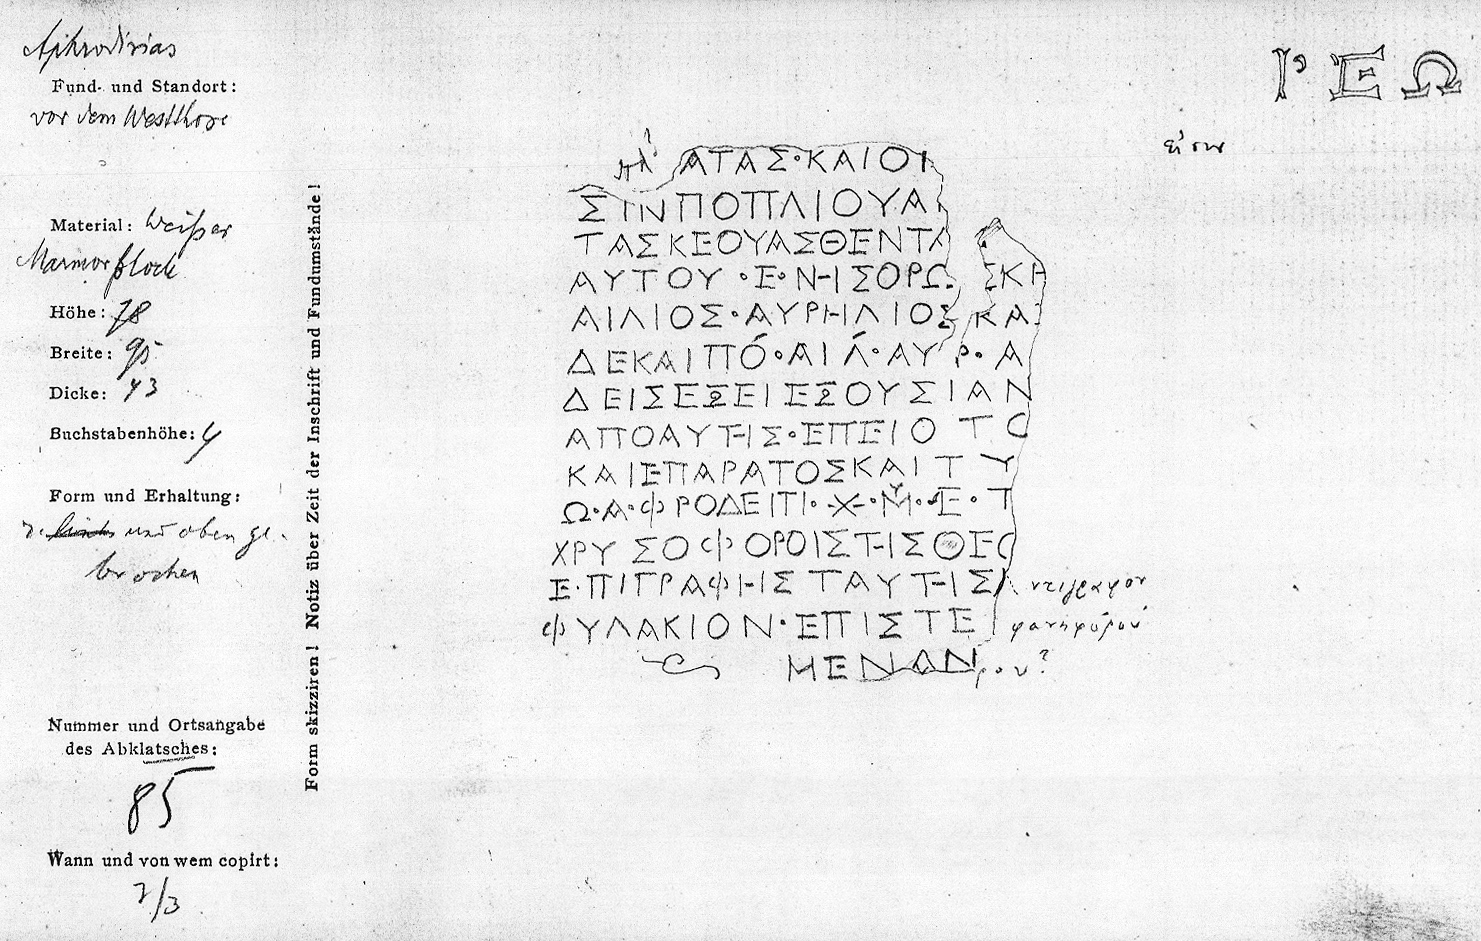 Aphrodisias
Fund- und Standort:
vor dem Westthore
Material: Weißer
Marmorblock
Höhe: 78
Breite: 95
Dicke: 43
Buchstabenhöhe: 4
Form und Erhaltung:
r. und oben ge-
brochen
Nummer und Ortsangabe
des Abklatsches:
85
Wann und von wem copirt:
7/3
Form skizziren! Notiz über Zeit der Inschrift und Fundumstände!
Ρ Ε Ω
ΑΤΑΣ·ΚΑΙΟΙ
ΣΙΝΠΟΠΛΙΟΥΑΙ
ΤΑΣΚΕΟΥΑΣΘΕΝΤΑ
ΑΥΤΟΥ·Ε·ΝΗΣΟΡΩ ΣΚΗ
ΑΙΛΙΟΣ·ΑΥΡΗΛΙΟΣ ΚΑΙ
ΔΕΚΑΙΠΟ·ΑΙΛ·ΑΥΡ·Α
ΔΕΙΣΕΞΕΙΕΞΟΥΣΙΑΝ
ΑΠΟΑΥΤΗΣ·ΕΠΕΙΟΤΟ
ΚΑΙΕΠΑΡΑΤΟΣΚΑΙΤΥ
Ω·Α·ΦΡΟΔΕΙΤΙ·Χ·Μ·Ε·Τ
ΧΡΥΣΟΦΟΡΟΙΣΤΗΣΘΕΟ
Ε·ΠΙΓΡΑΦΗΣΤΑΥΤΗΣΑ ντιγραφον
ΦΥΛΑΚΙΟΝ·ΕΠΙΣΤΕ φανηφόρου
ΜΕΝΑΝΔρου?